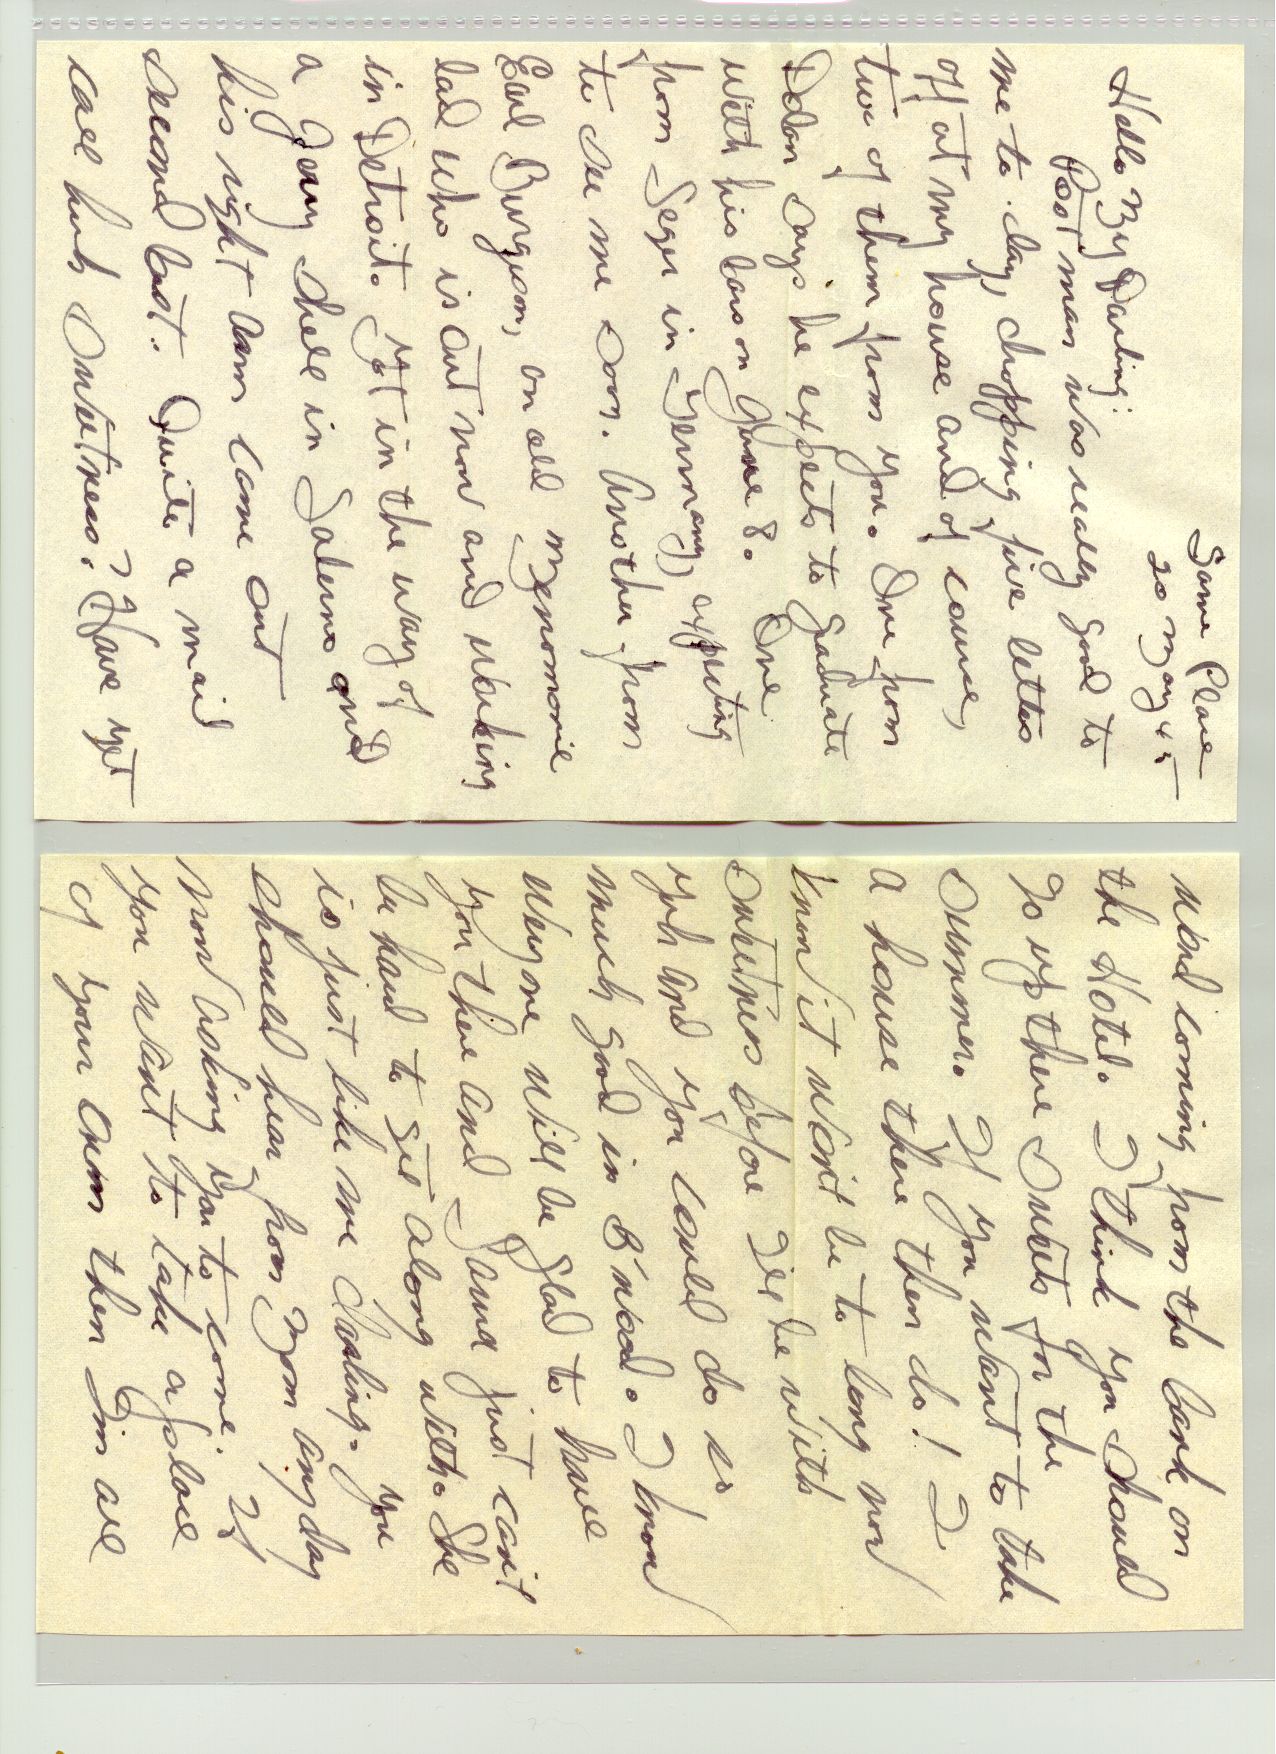 Same Place
20 May 45
Hello My Darling:
Post man was really good to
me to-day, chopping five letters
of at my house and of course,
two of them from you. One from
Dolan says he expects to graduate
with his bars on June 8. One
from Seger in Germany, expecting
to see me soon. Another from
Earl Burgeson, an old Menomonie
lad who is out now and working
in Detroit. Got in the way of
a Jerry shell in Salerno and
his right arm came out
second best. Quite a mail
call huh Sweetness? Have yet
word coming from the bank on
the Hotel. I think you should
go up there Sweets for the
Summer. If you want to take
a house there then do! I
know it won't be to long now
Sweetness before I'll be with
yuh and you could do so
much good in B'wood. I know
Wayne will be glad to have
you there and Gama just can't
be hard to get along with. She
is just like me darling. You
should hear from Mom any day
now asking you to come. If
you want to take a place
of your own then I'm all